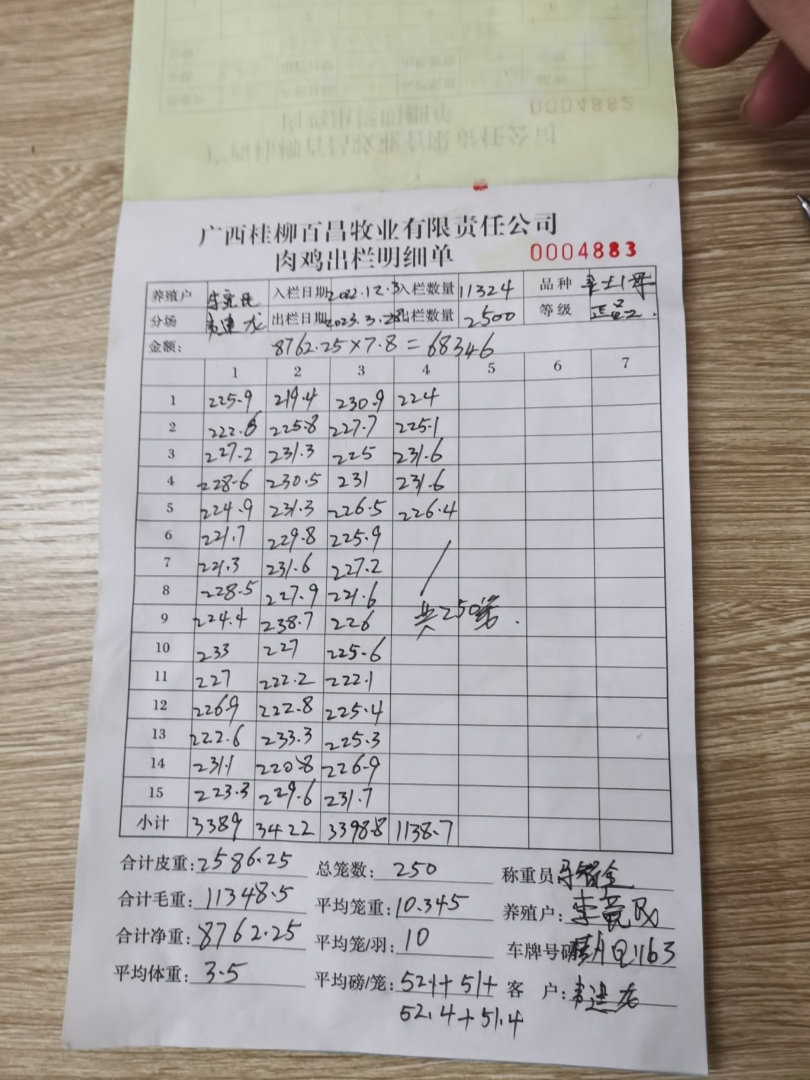 0004882
广西桂柳百昌牧业有限责任公司
肉鸡出栏明细单 0004883
养殖户 入栏日期 2022.12.3 入栏数量 11324 品种
分场 韦进龙 出栏日期 2023.3.28 出栏数量 2500 等级 正品
金额: 8762.25×7.8=68346
1 2 3 4 5 6 7
1 225.9 219.4 230.9 224
2 222.6 225.8 227.7 225.1
3 227.2 231.3 225 231.6
4 228.6 230.5 231 231.6
5 224.9 231.3 226.5 226.4
6 221.7 229.8 225.9
7 221.3 231.6 227.2
8 228.5 227.9 221.6
9 224.4 238.7 226 共250笼.
10 233 227 225.6
11 227 222.2 222.1
12 226.9 222.8 225.4
13 222.6 233.3 225.3
14 231.1 220.8 226.9
15 223.3 229.6 231.7
小计 3389 3422 3398.8 1138.7
合计皮重: 2586.25 总笼数: 250 称重员
合计毛重: 11348.5 平均笼重: 10.345 养殖户:
合计净重: 8762.25 平均笼/羽: 10 车牌号码 1163
平均体重: 3.5 平均磅/笼: 52.1+51+ 客 户: 韦进龙
52.4+51.4